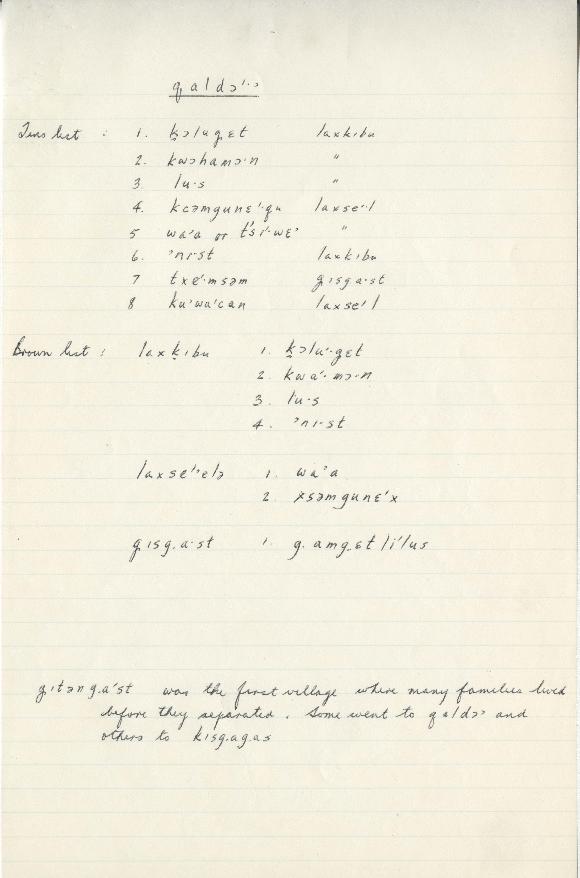 qaldɔ'·ɔ
list : 1. ḵəlugɛt laxkıbu
2. kwəhamɔ·n "
3 lu·s "
4. kcəmgunɛ'·qu laxse'·l
5 wa'a or t's'i'·wɛ' "
6. 'nı·st laxkıbu
7 txe'·msəm gısga·st
8 ku'wa'can laxse'l
Brown list : laxḵıbu 1. ḵəlu'·gɛt
2. kwa'·mɔ·n
3. lu·s
4. 'nı·st
laxse'·'elə 1. wa'a
2. xsəmgunɛ'x
gısg.a·st 1. g.amg.ɛt li'lus
g.ıtəng.a'st was the first village where many families lived
before they separated. Some went to qaldɔ' and
others to kısg.ag.as